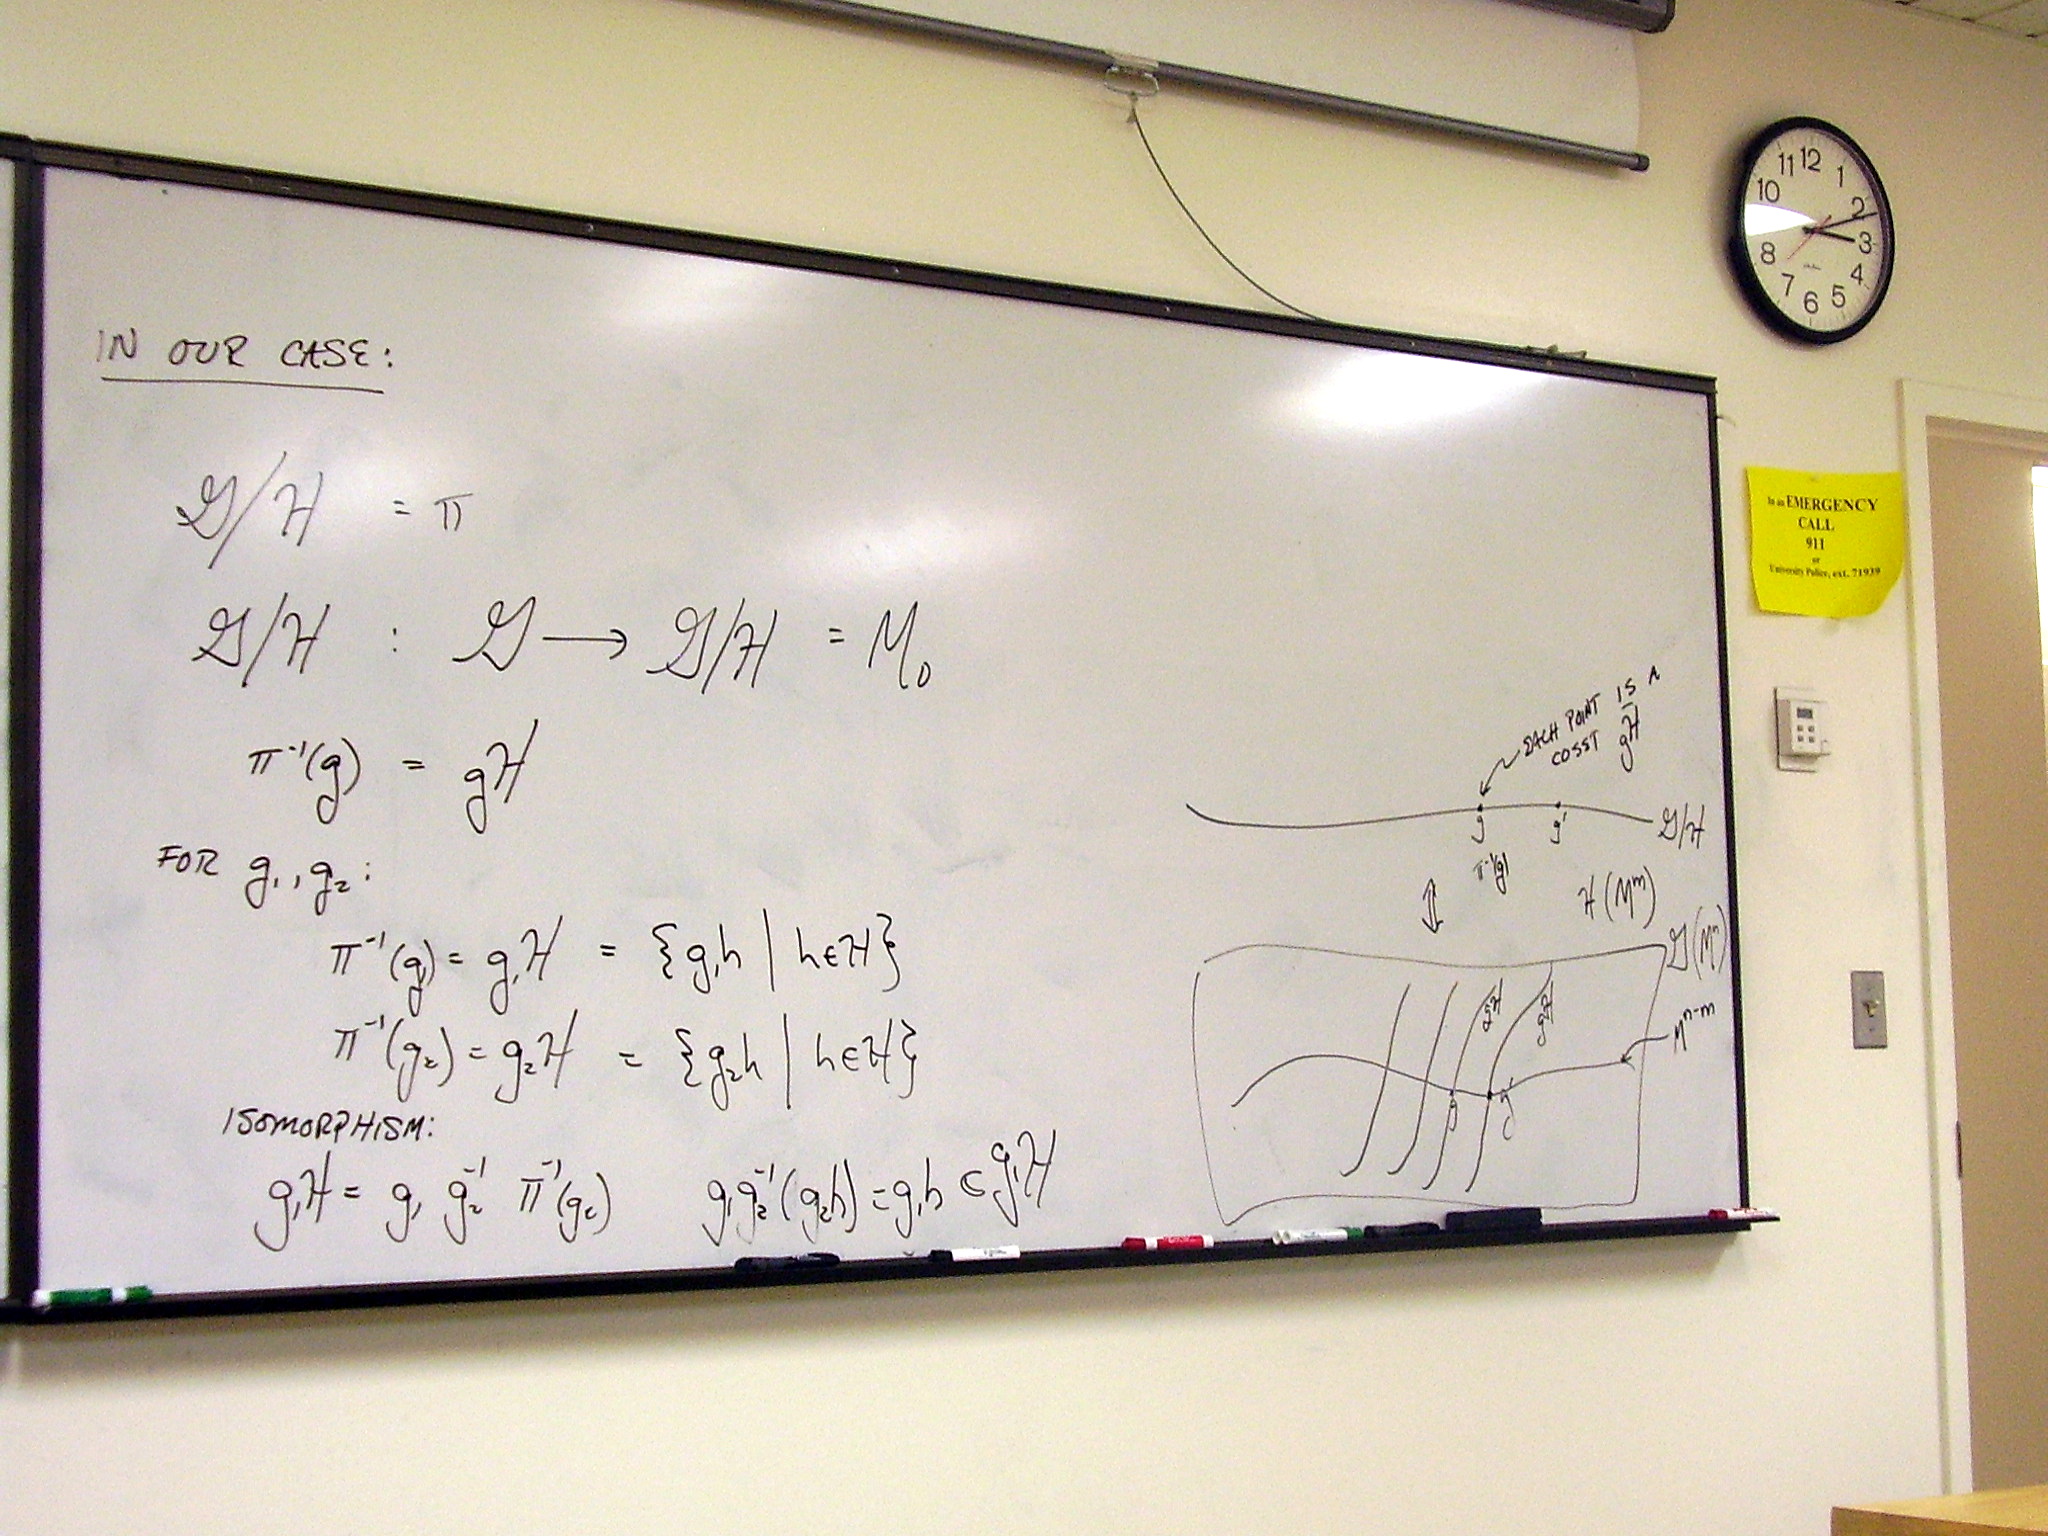 IN OUR CASE:
𝒢/ℋ = π
𝒢/ℋ : 𝒢 ⟶ 𝒢/ℋ = M₀
π⁻¹(g) = gℋ
FOR g₁, g₂:
π⁻¹(g₁) = g₁ℋ = {g₁h | h∈ℋ}
π⁻¹(g₂) = g₂ℋ = {g₂h | h∈ℋ}
ISOMORPHISM:
g₁ℋ = g₁ g₂⁻¹ π⁻¹(g₂) g₁g₂⁻¹(g₂h) = g₁h ∈ g₁ℋ
EACH POINT IS A
COSET gℋ
g g' 𝒢/ℋ
π⁻¹(g)
⇕
ℋ (Mᵐ)
𝒢 (Mⁿ)
gℋ g'ℋ
Mⁿ⁻ᵐ
g g'
12
11 1
10 2
3
8 4
7 5
6
In an EMERGENCY
CALL
911
or
University Police, ext. 71939